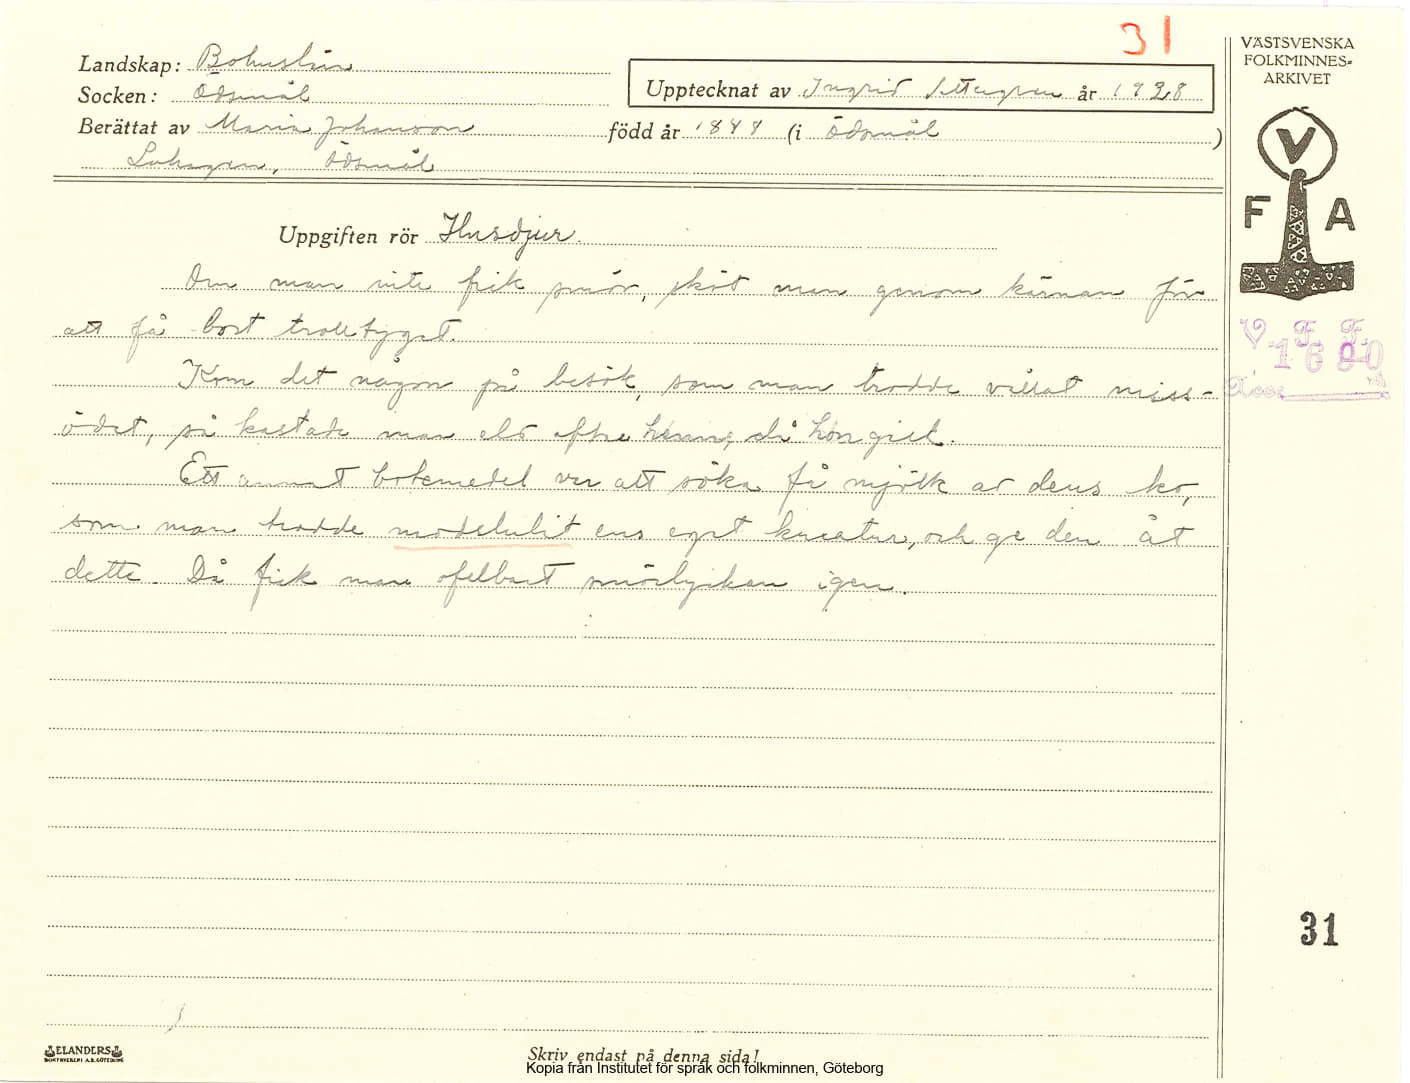 31
VÄSTSVENSKA
FOLKMINNES-
ARKIVET
Landskap: Bohuslän
Socken: Ödsmål
Upptecknat av Ingrid år 1928
Berättat av Maria Johansson född år 1847 (i Ödsmål)
Ödsmål
V
F A
Uppgiften rör Husdjur.
Om man inte fick smör, sköt man genom kärnan för
att få bort trolltyget.
Kom det någon på besök, som man trodde vållat miss-
ödet, så kastade man eld efter henne, då hon gick.
Ett annat botemedel var att söka få mjölk av dens ko,
som man trodde modstulit ens eget kreatur, och ge den åt
dette. Då fick man ofelbart smörlyckan igen.
V. F. F.
1690
Acc:
31
ELANDERS
BOKTRYCKERI A.B. GÖTEBORG
Skriv endast på denna sida!
Kopia från Institutet för språk och folkminnen, Göteborg